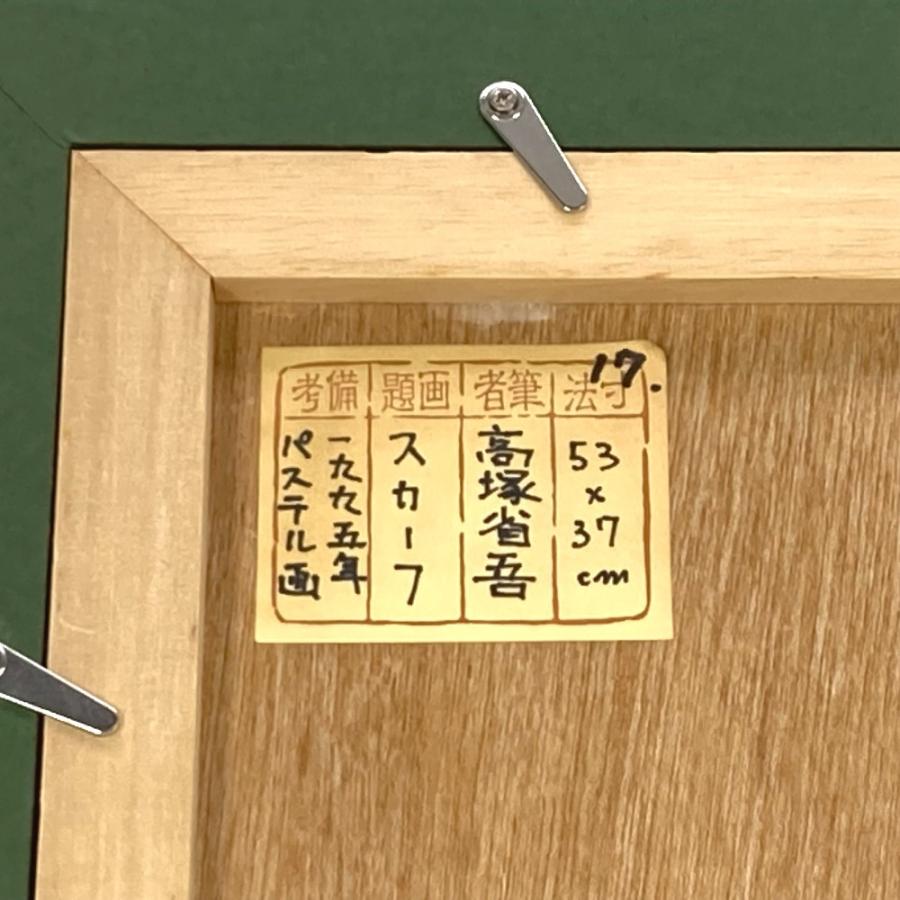 17.
寸法
53
x
37
cm
筆者
高塚省吾
画題
スカーフ
備考
一九九五年
パステル画